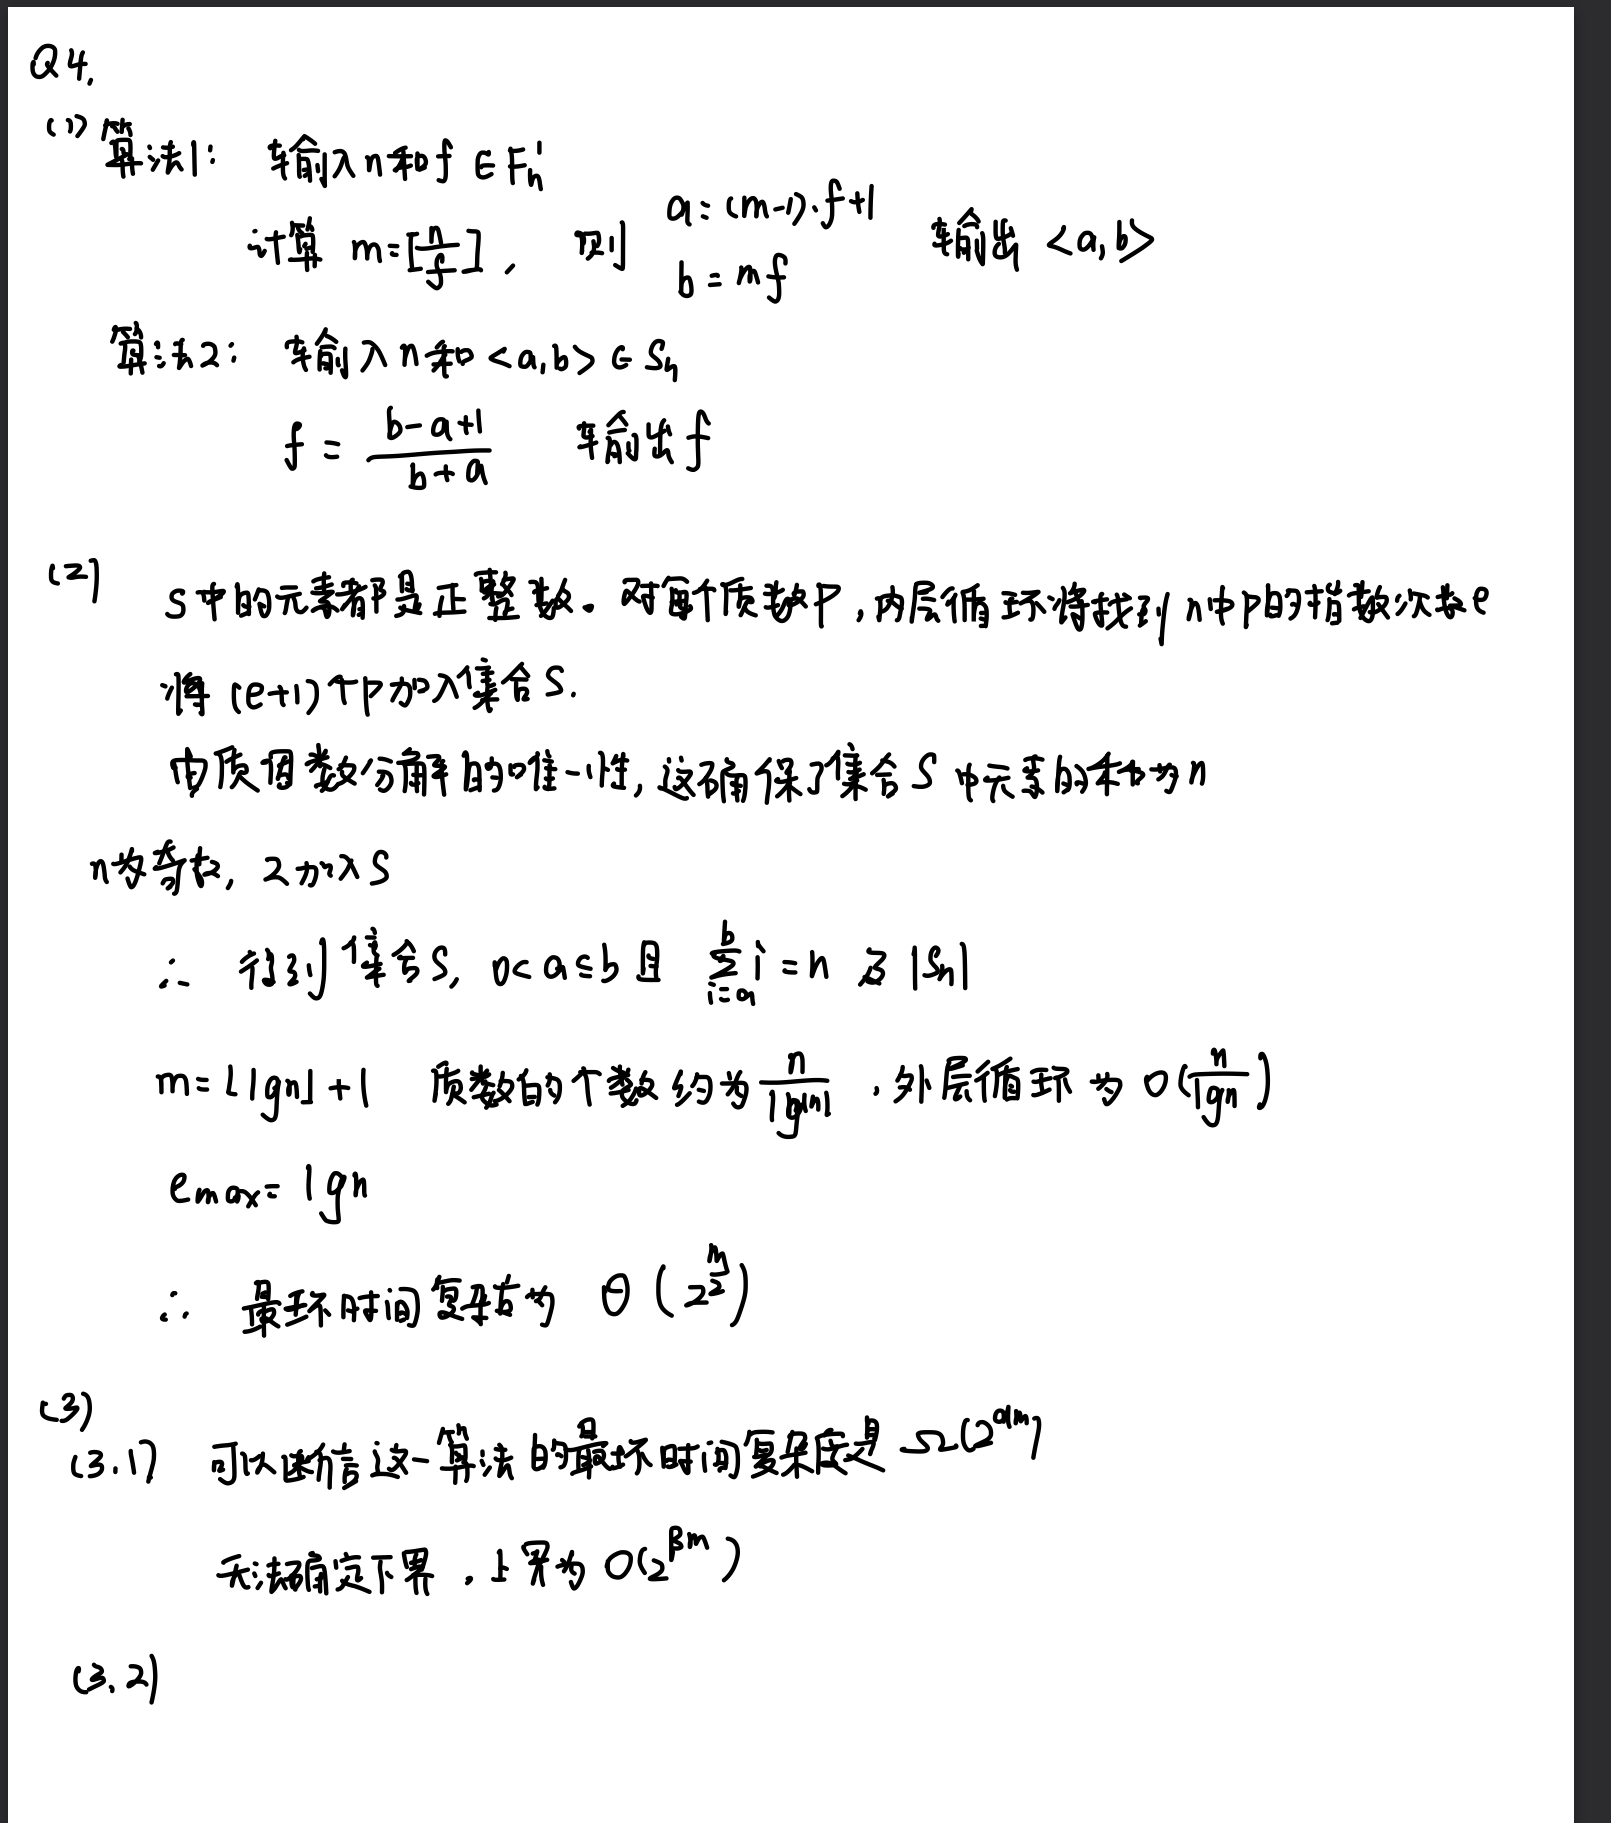 Q4.
(1) 算法1: 输入n和f ∈ Fn'
计算 m=[n/f], 则 a=(m-1)·f+1 b=mf 输出 <a,b>
算法2: 输入n和<a,b> ∈ Sn
f = (b-a+1)/(b+a) 输出f
(2) S中的元素都是正整数。对每个质数P,内层循环将找到n中P的指数次数e
将(e+1)个P加入集合S.
由质因数分解的唯一性,这确保了集合S中元素的和为n
n为奇数, 2加入S
∴ 得到集合S, 0<a≤b且 ∑_{i=a}^{b} i = n 及 |Sn|
m=⌊lgn⌋+1 质数的个数约为 n/lg|n| ,外层循环为 O(n/lgn)
emax= lgn
∴ 最坏时间复杂度为 θ(2^{m/2})
(3)
(3.1) 可以断言这一算法的最坏时间复杂度是 Ω(2^{αm})
无法确定下界,上界为 O(2^{βm})
(3.2)